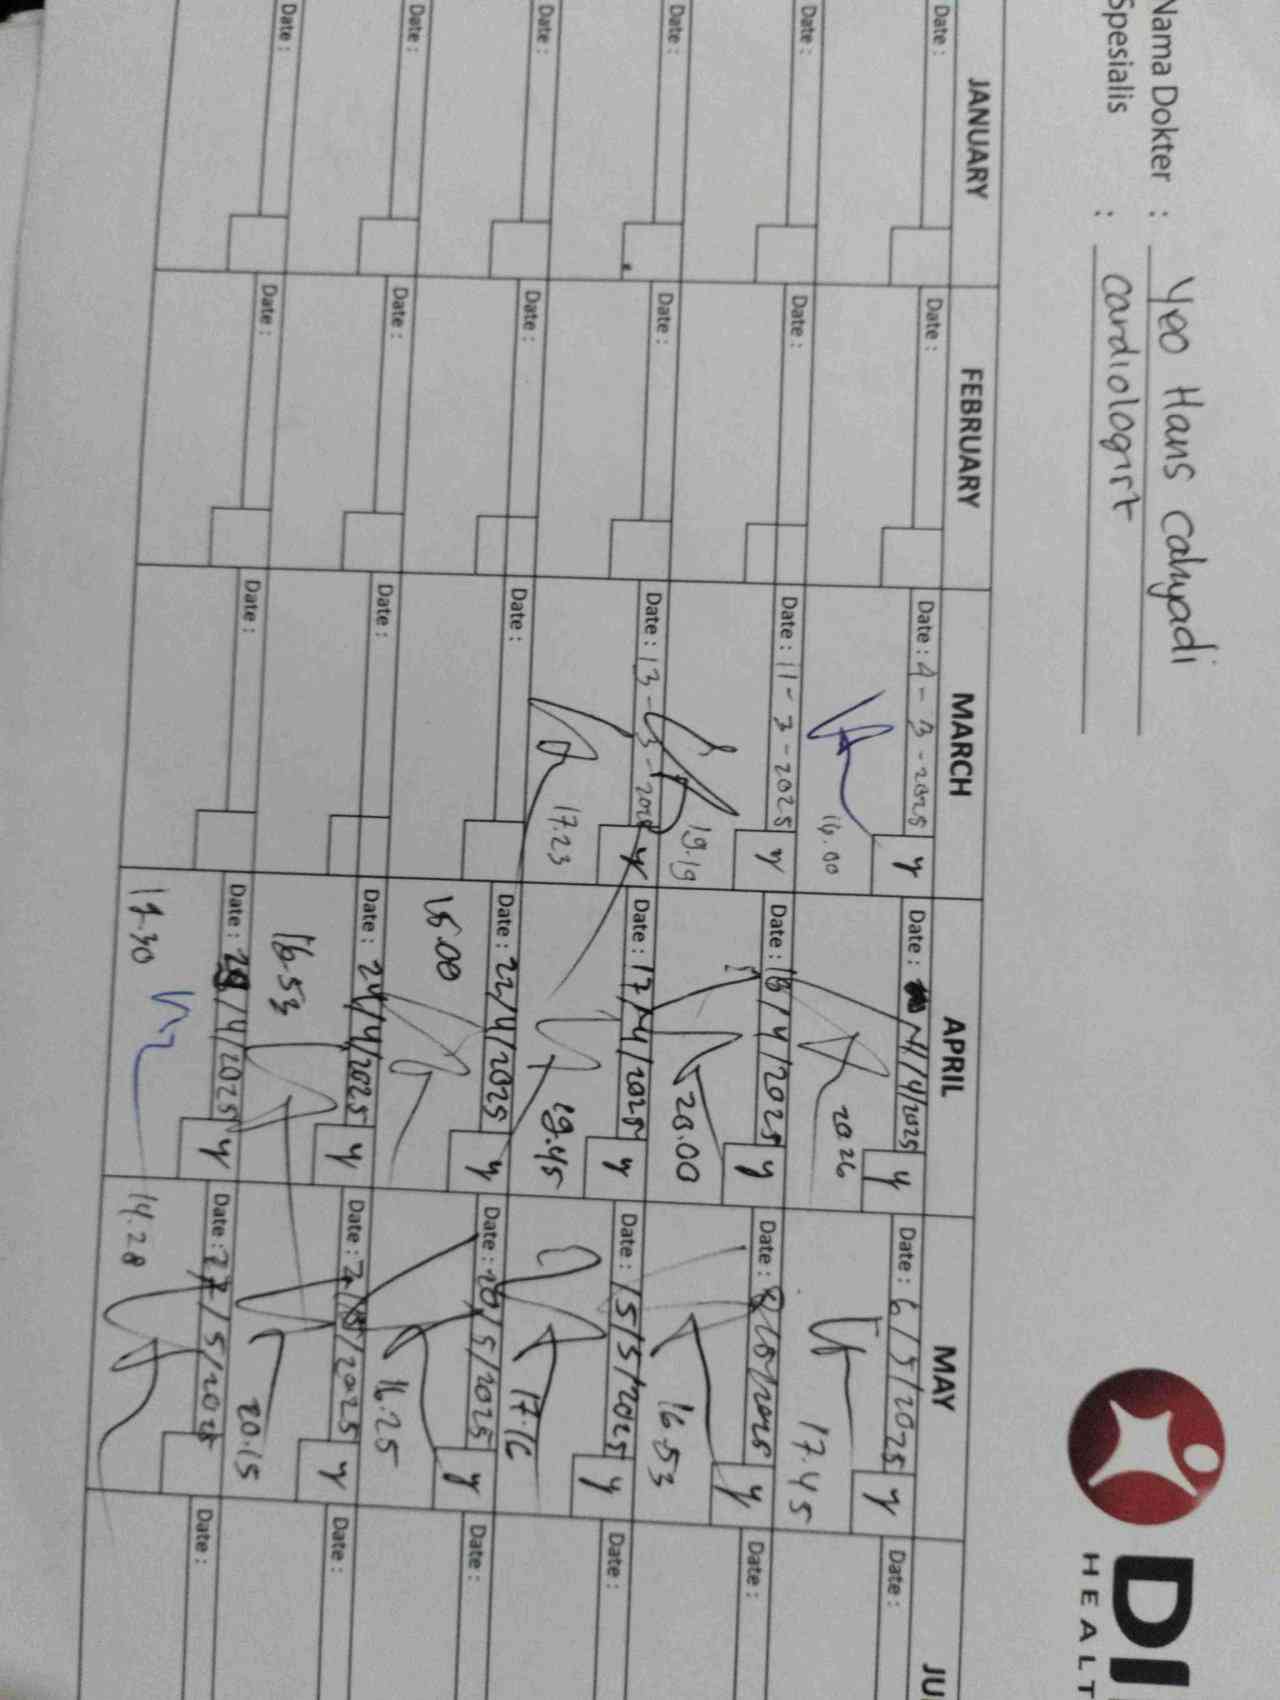 Nama Dokter : Yeo Hans Cahyadi
Spesialis : Cardiologist
DI
HEALT
JANUARY FEBRUARY MARCH APRIL MAY JU
Date : Date : Date : 4-3-2025 y Date : /4/2025 y Date : 6/5/2025 y Date :
16.00 2026 17.45
Date : Date : Date : 11-3-2025 y Date : /4/2025 y Date : 8/5/2025 y Date :
19.19 20.00 16.53
Date : Date : Date : 13-3-2025 y Date : 17/4/2025 y Date : 15/5/2025 y Date :
17.23 19.45 17.16
Date : Date : Date : Date : 22/4/2025 y Date : 20/5/2025 y Date :
15.00 16.25
Date : Date : Date : Date : 24/4/2025 y Date : /2025 y Date :
16.53 20.15
Date : Date : Date : Date : /4/2025 y Date : 27/5/2025 Date :
14.28